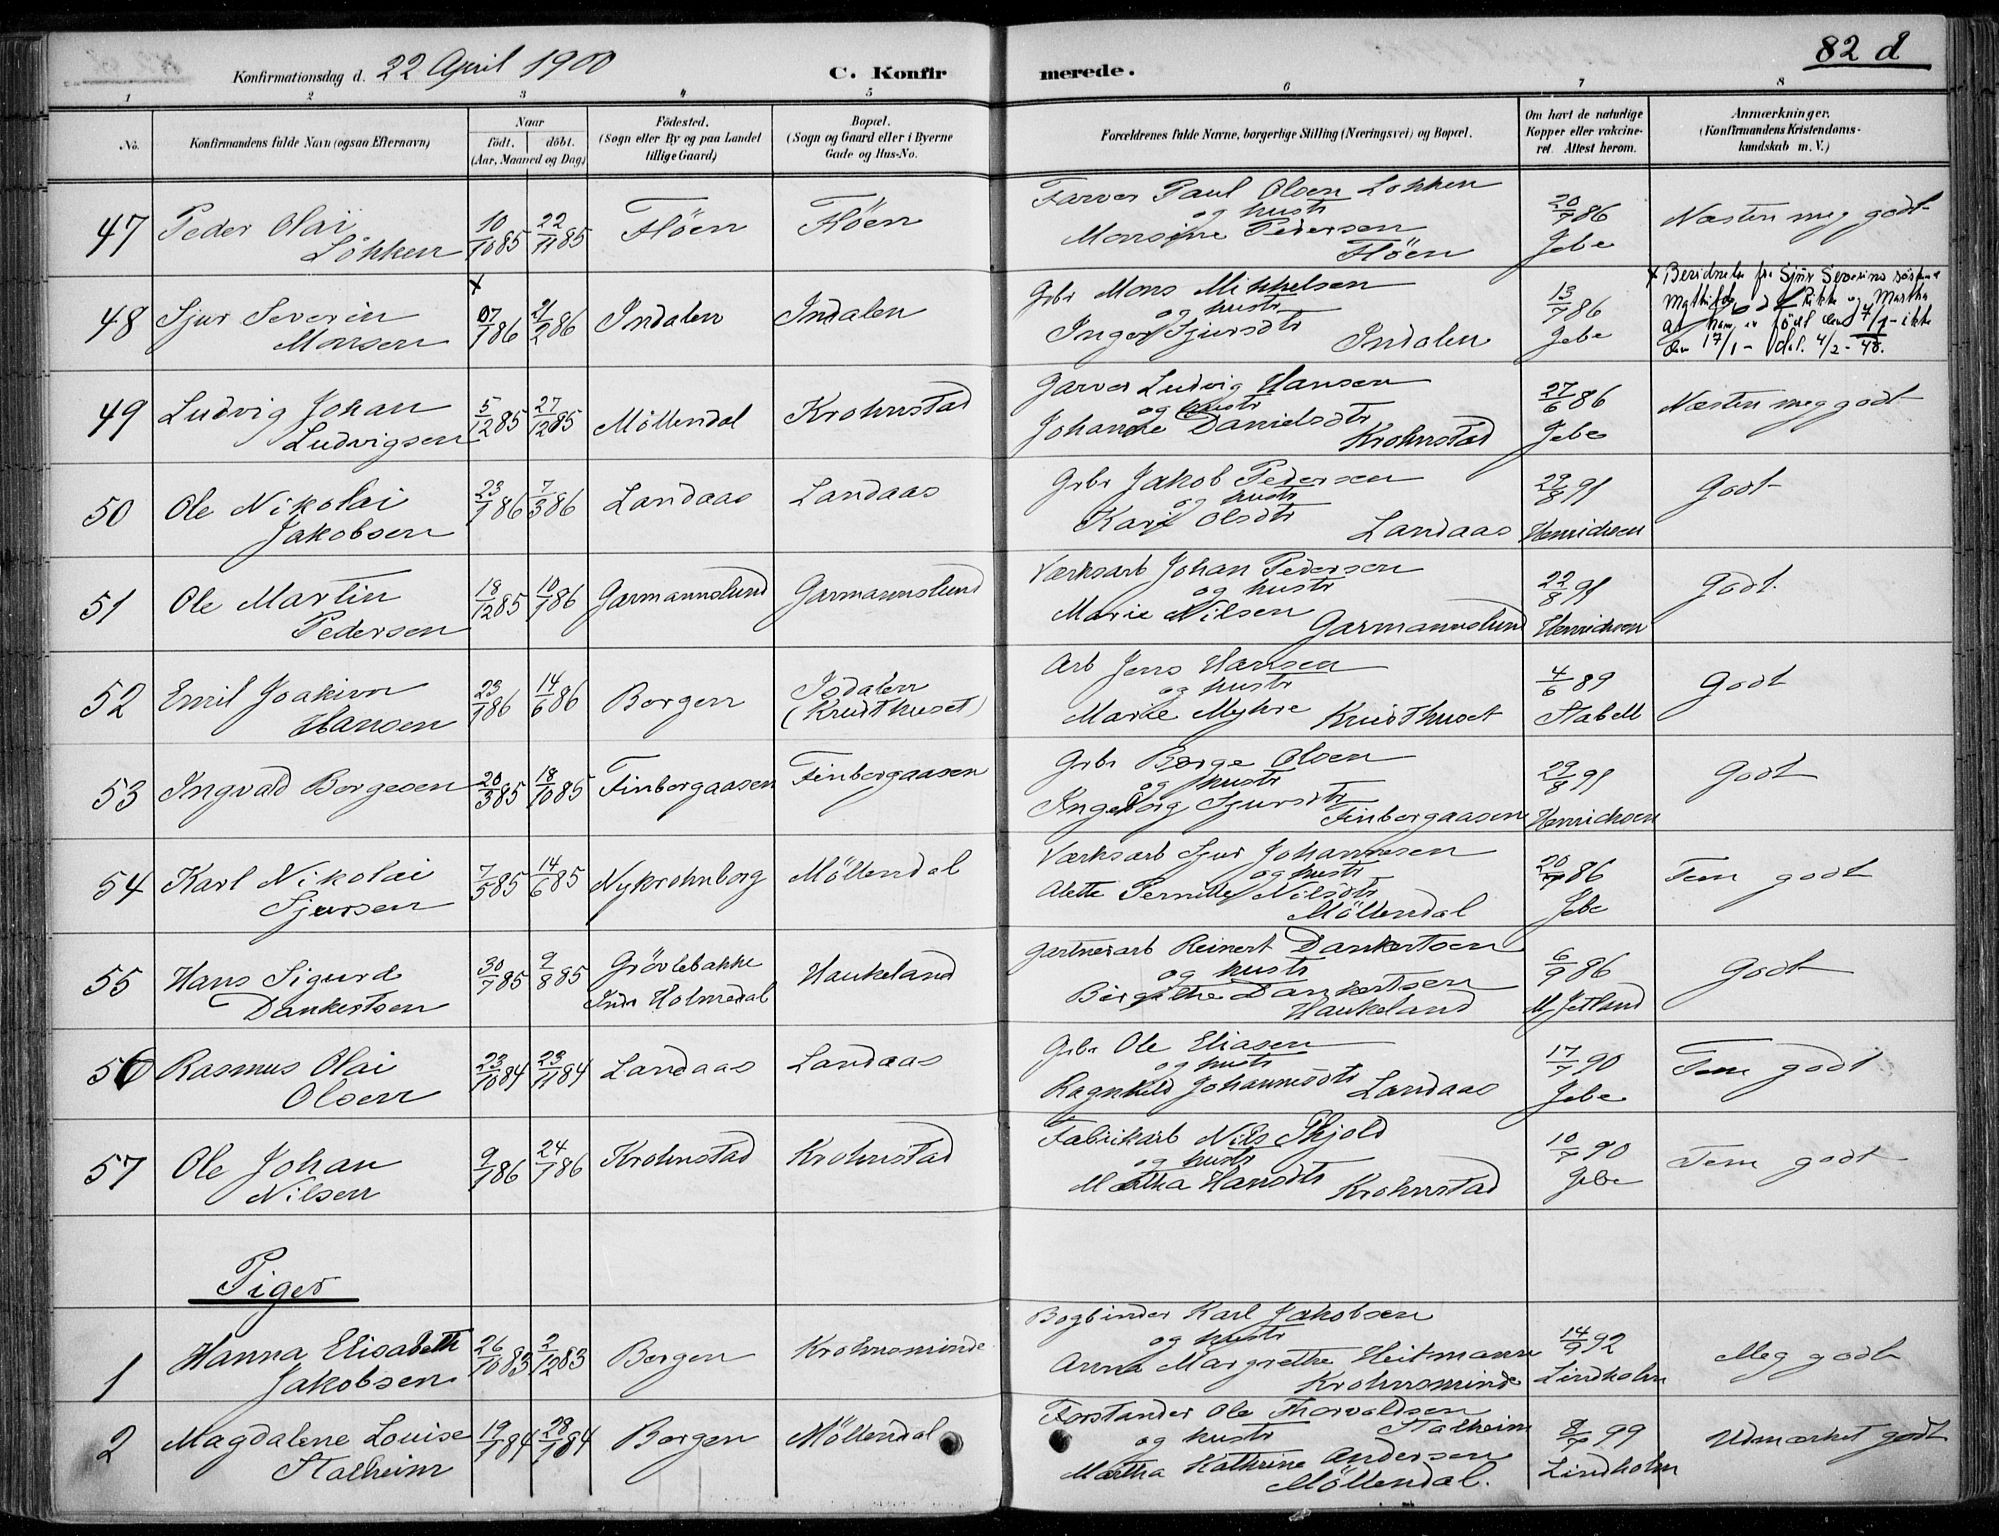 82 d
Konfirmationsdag d. 22 April 1900 C. Konfirmerede.
1 2 3 4 5 6 7 8
No. Konfirmandens fulde Navn (ogsaa Efternavn) Naar født. døbt. (Aar, Maaned og Dag) Fødested. (Sogn eller By og paa Landet tillige Gaard) Bopæl. (Sogn og Gaard eller i Byerne Gade og Hus-No. Forældrenes fulde Navne, borgerlige Stilling (Næringsvei) og Bopæl. Om havt de naturlige Kopper eller vakcineret. Attest herom. Anmærkninger. (Konfirmandens Kristendomskundskab m. V.)
47 Peder Olai Løkken 10/10 85 22/11 85 Fløen Fløen Farver Paul Olsen Løkken og hustr Monsine Pedersen Fløen 20/7 86 Jebe Næsten meg godt
48 Sjur Severin Monsen 07/1 86 21/2 86 Indalen Indalen Grbr Mons Mikkelsen og hustr Inger Sjursdtr Indalen 13/7 86 Jebe
x fra Sjur Severins
Mathilde og Martha
at han er født den 7/1 - ikke
den 17/1 - 4/2 - 48.
49 Ludvig Johan Ludvigsen 5/12 85 27/12 85 Møllendal Krohnstad Garver Ludvig Hansen og hustr Johanne Danielsdtr Krohnstad 27/6 86 Jebe Næsten meg godt
50 Ole Nikolai Jakobsen 23/1 86 7/3 86 Landaas Landaas Grbr Jakob Pedersen og hustr Kari Olsdtr Landaas 29/8 99 Henrichsen Godt
51 Ole Martin Pedersen 18/12 85 10/1 86 Garmannslund Garmannslund Værksarb Johan Pedersen og hustr Marie Nilsen Garmannslund 22/8 99 Henrichsen Godt.
52 Emil Joakim Hansen 23/1 86 14/6 86 Bergen Isdalen (Krudthuset) Arb Jens Hansen og hustr Marie Myhre Krudthuset 4/6 89 Stabell Godt
53 Ingvald Børgesen 20/3 85 18/10 85 Finbergaasen Finbergaasen Grbr Børge Olsen og hustr Ingeborg Sjursdtr Finbergaasen 29/8 99 Henrichsen Godt
54 Karl Nikolai Sjursen 7/5 85 14/6 85 Nykrohnborg Møllendal Værksarb Sjur Johannesen og hustr Alette Pernille Nilsdtr Møllendal 20/7 86 Jebe Tem godt
55 Hans Sigurd Dankertsen 30/7 85 9/8 85 Grøvlebakke Indr Holmedal Haukeland Gartnerarb Reinert Dankertsen og hustr Birgithe Dankertsen Haukeland 6/9 86 M Jetlund Godt
56 Rasmus Olai Olsen 23/10 84 23/11 84 Landaas Landaas Grbr Ole Eliasen og hustr Ragnhild Johannesdtr Landaas 17/7 90 Jebe Tem godt
57 Ole Johan Nilsen 9/1 86 24/1 86 Krohnstad Krohnstad Fabrikarb Nils Skjold og hustr Martha Hansdtr Krohnstad 10/7 90 Jebe Tem godt
Piger
1 Hanna Elisabeth Jakobsen 26/10 83 2/12 83 Bergen Krohnsminde Bogbinder Karl Jakobsen og hustr Anna Margrethe Heitmann Krohnsminde 14/9 92 Lindholm Meg godt
2 Magdalene Louise Stalheim 19/1 84 28/1 84 Bergen Møllendal Forstander Ole Thorvaldsen Stalheim og hustr Martha Kathrine Andersen Møllendal. 8/7 99 Lindholm Udmærket godt